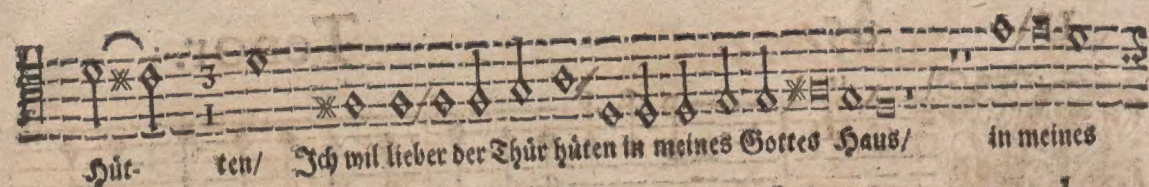 3
1
Hüt- ten/ Ich wil lieber der Thür hüten in meines Gottes Haus/ in meines